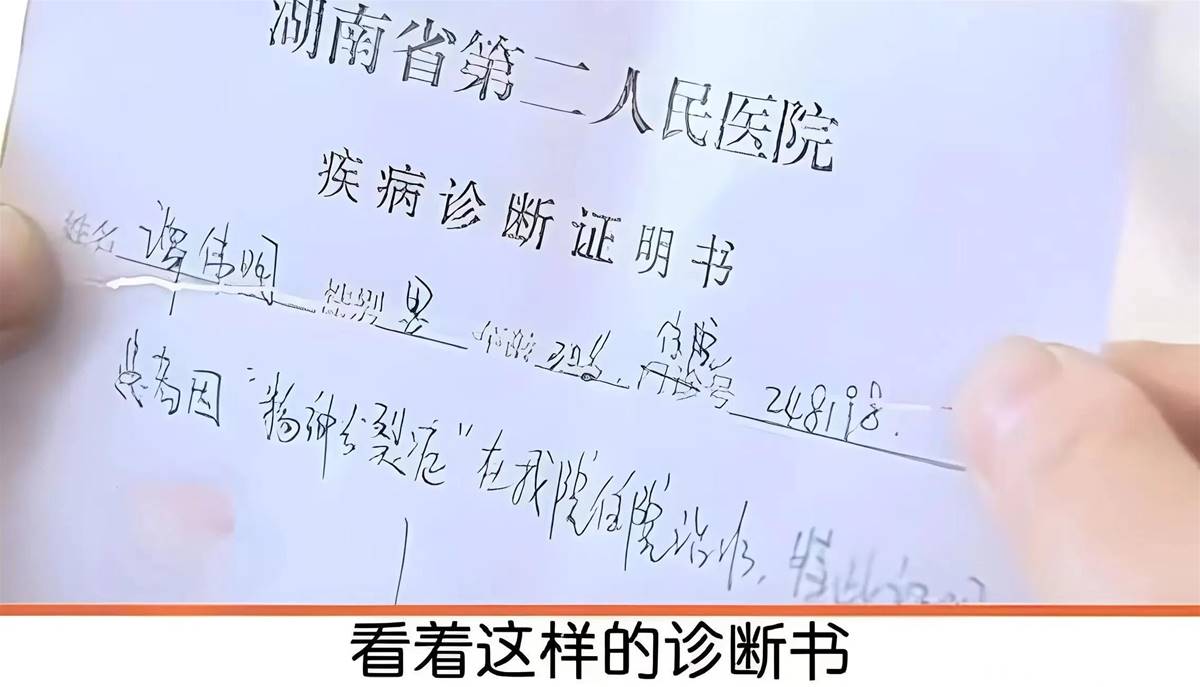 湖南省第二人民医院
疾病诊断证明书
姓名 谭伟明 性别 男 年龄 住院 门诊号 248198.
患者因"精神分裂症"在我院住院治疗,特此证明
看着这样的诊断书